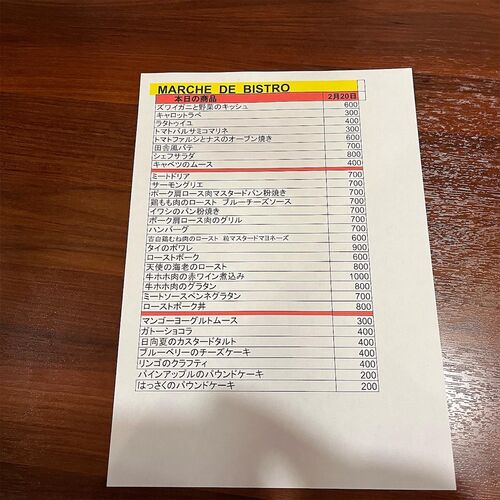 MARCHE DE BISTRO
本日の商品 2月20日
ズワイガニと野菜のキッシュ 600
キャロットラペ 300
ラタトゥイユ 400
トマトバルサミコマリネ 300
トマトファルシとナスのオーブン焼き 600
田舎風パテ 700
シェフサラダ 800
キャベツのムース 400
ミートドリア 700
サーモングリエ 700
ポーク肩ロース肉マスタードパン粉焼き 700
鶏もも肉のロースト ブルーチーズソース 700
イワシのパン粉焼き 700
ポーク肩ロース肉のグリル 700
ハンバーグ 700
吉白鶏むね肉のロースト 粒マスタードマヨネーズ 600
タイのポワレ 900
ローストポーク 600
天使の海老のロースト 800
牛ホホ肉の赤ワイン煮込み 1000
牛ホホ肉のグラタン 800
ミートソースペンネグラタン 700
ローストポーク丼 800
マンゴーヨーグルトムース 300
ガトーショコラ 400
日向夏のカスタードタルト 400
ブルーベリーのチーズケーキ 400
リンゴのクラフティ 400
パインアップルのパウンドケーキ 200
はっさくのパウンドケーキ 200